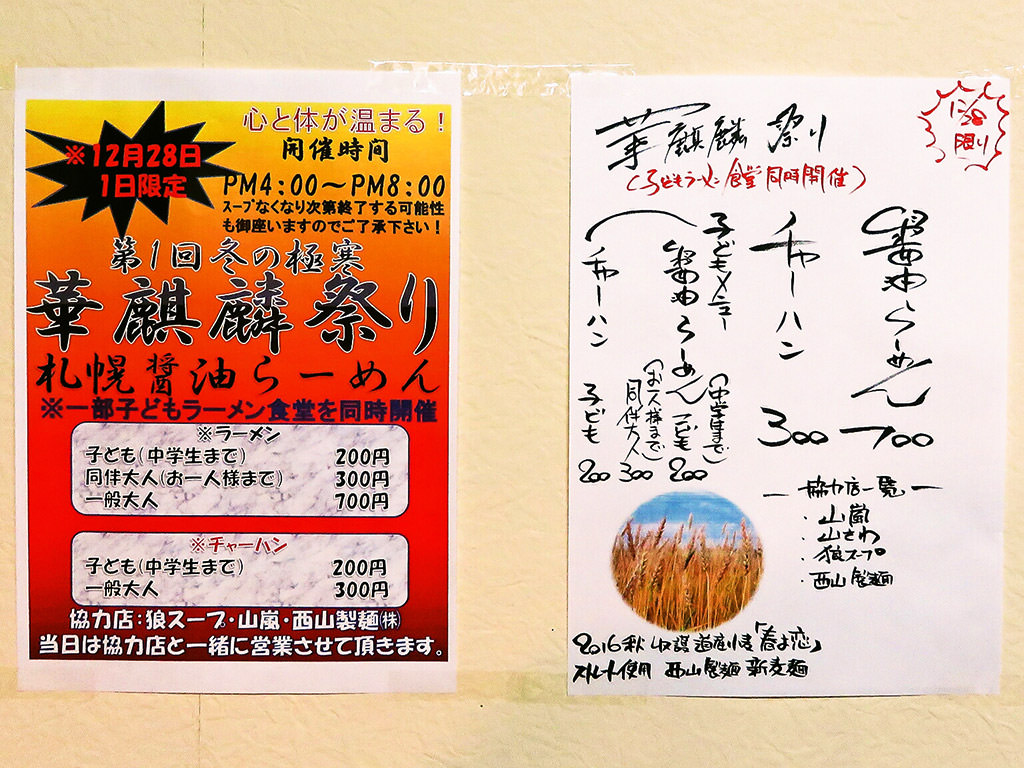 心と体が温まる！
※12月28日
1日限定
開催時間
PM4:00～PM8:00
スープなくなり次第終了する可能性
も御座いますのでご了承下さい！
第1回冬の極寒
華麒麟祭り
札幌醤油らーめん
※一部子どもラーメン食堂を同時開催
※ラーメン
子ども(中学生まで) 200円
同伴大人(お一人様まで) 300円
一般大人 700円
※チャーハン
子ども(中学生まで) 200円
一般大人 300円
協力店:狼スープ・山嵐・西山製麺㈱
当日は協力店と一緒に営業させて頂きます。
12/28
限り
華麒麟祭り
(子どもラーメン食堂同時開催)
醤油らーめん 700
チャーハン 300
子どもメニュー
(中学生まで)
醤油らーめん こども 200
(お一人様まで)
同伴大人 300
チャーハン 子ども 200
― 協力店一覧 ―
・山嵐
・山さわ
・狼スープ
・西山製麺
2016秋収穫道産小麦「春よ恋」
ストレート使用 西山製麺 新麦麺